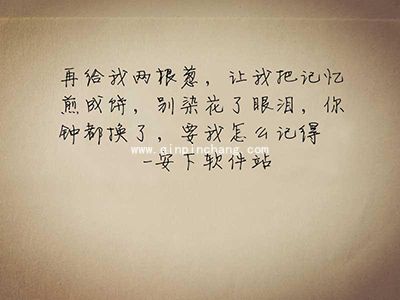 再给我两根葱，让我把记忆
煎成饼，别染花了眼泪，你
钟都换了，要我怎么记得
www.qinpinchang.com
-安下软件站